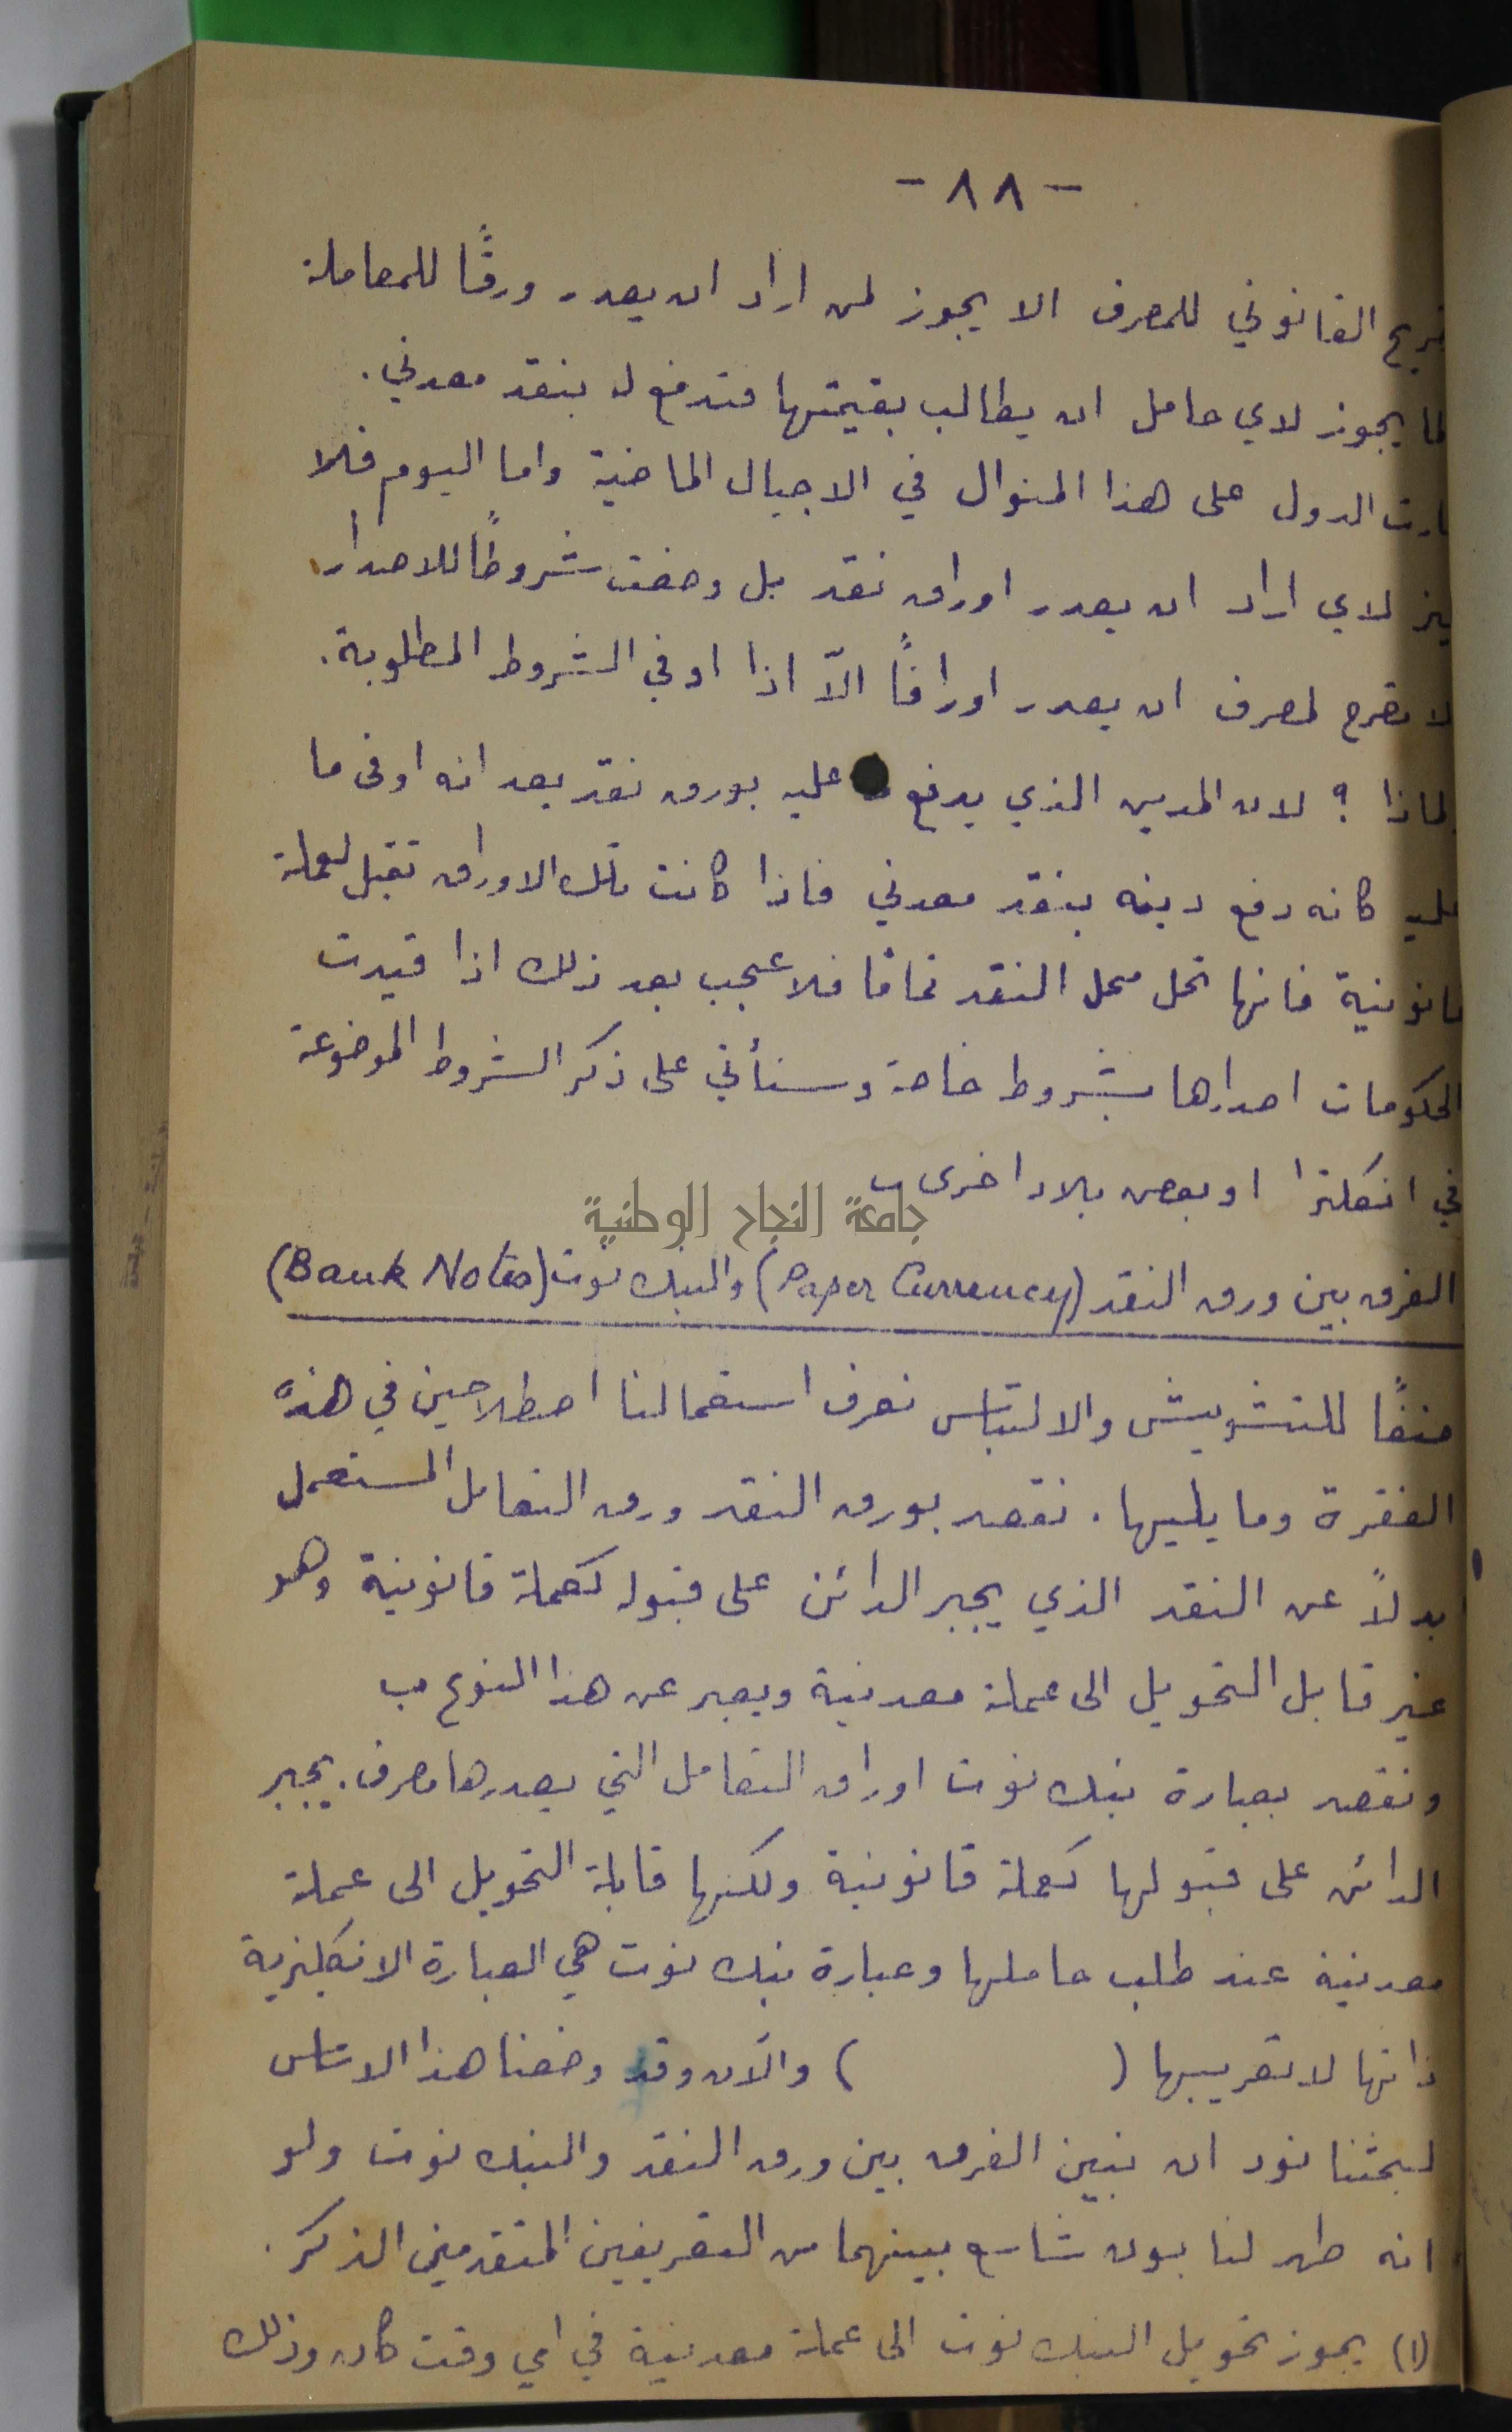 - ٨٨ -
القانوني للمصرف الا يجوز لمن اراد ان يصدر ورقًا للمعاملة
يجوز لاي حامل ان يطالب بقيمتها فتدفع له بنقد معدني.
الدول على هذا المنوال في الاجيال الماضية واما اليوم فلا
لاي اراد ان يصدر اوراق نقد بل وضعت شروطًا للاصدار
لا تصرح لمصرف ان يصدر اوراقًا الاّ اذا اوفى الشروط المطلوبة.
لماذا ؟ لان المدين الذي يدفع عليه بورق نقد يعد انه اوفى ما
عليه كانه دفع دينه بنقد معدني فاذا كانت تلك الاوراق تقبل لعملة
قانونية فانها تحل محل النقد تمامًا فلا عجب بعد ذلك اذا قيدت
الحكومات اصدارها بشروط خاصة وسنأتي على ذكر الشروط الموضوعة
في انكلترا او بعض بلاد اخرى
جامعة النجاح الوطنية
الفرق بين ورق النقد (Paper Currency) والبنك نوت (Bank Notes)
منعًا للتشويش والالتباس نعرف استعمالنا اصطلاحين في هذه
الفقرة وما يليها. نقصد بورق النقد ورق التعامل المستعمل
بدلاً عن النقد الذي يجبر الدائن على قبوله كعملة قانونية وهو
غير قابل التحويل الى عملة معدنية ويعبر عن هذا النوع ب
ونقصد بعبارة بنك نوت اوراق التعامل التي يصدرها مصرف. يجبر
الدائن على قبولها كعملة قانونية ولكنها قابلة التحويل الى عملة
معدنية عند طلب حاملها وعبارة بنك نوت هي العبارة الانكليزية
ذاتها لا تعريبها ( ) والآن وقد وضعنا هذا الاساس
لبحثنا نود ان نبين الفرق بين ورق النقد والبنك نوت ولو
انه ظهر لنا بون شاسع بينهما من التعريفين المتقدمين الذكر.
(١) يجوز تحويل البنك نوت الى عملة معدنية في اي وقت كان وذلك